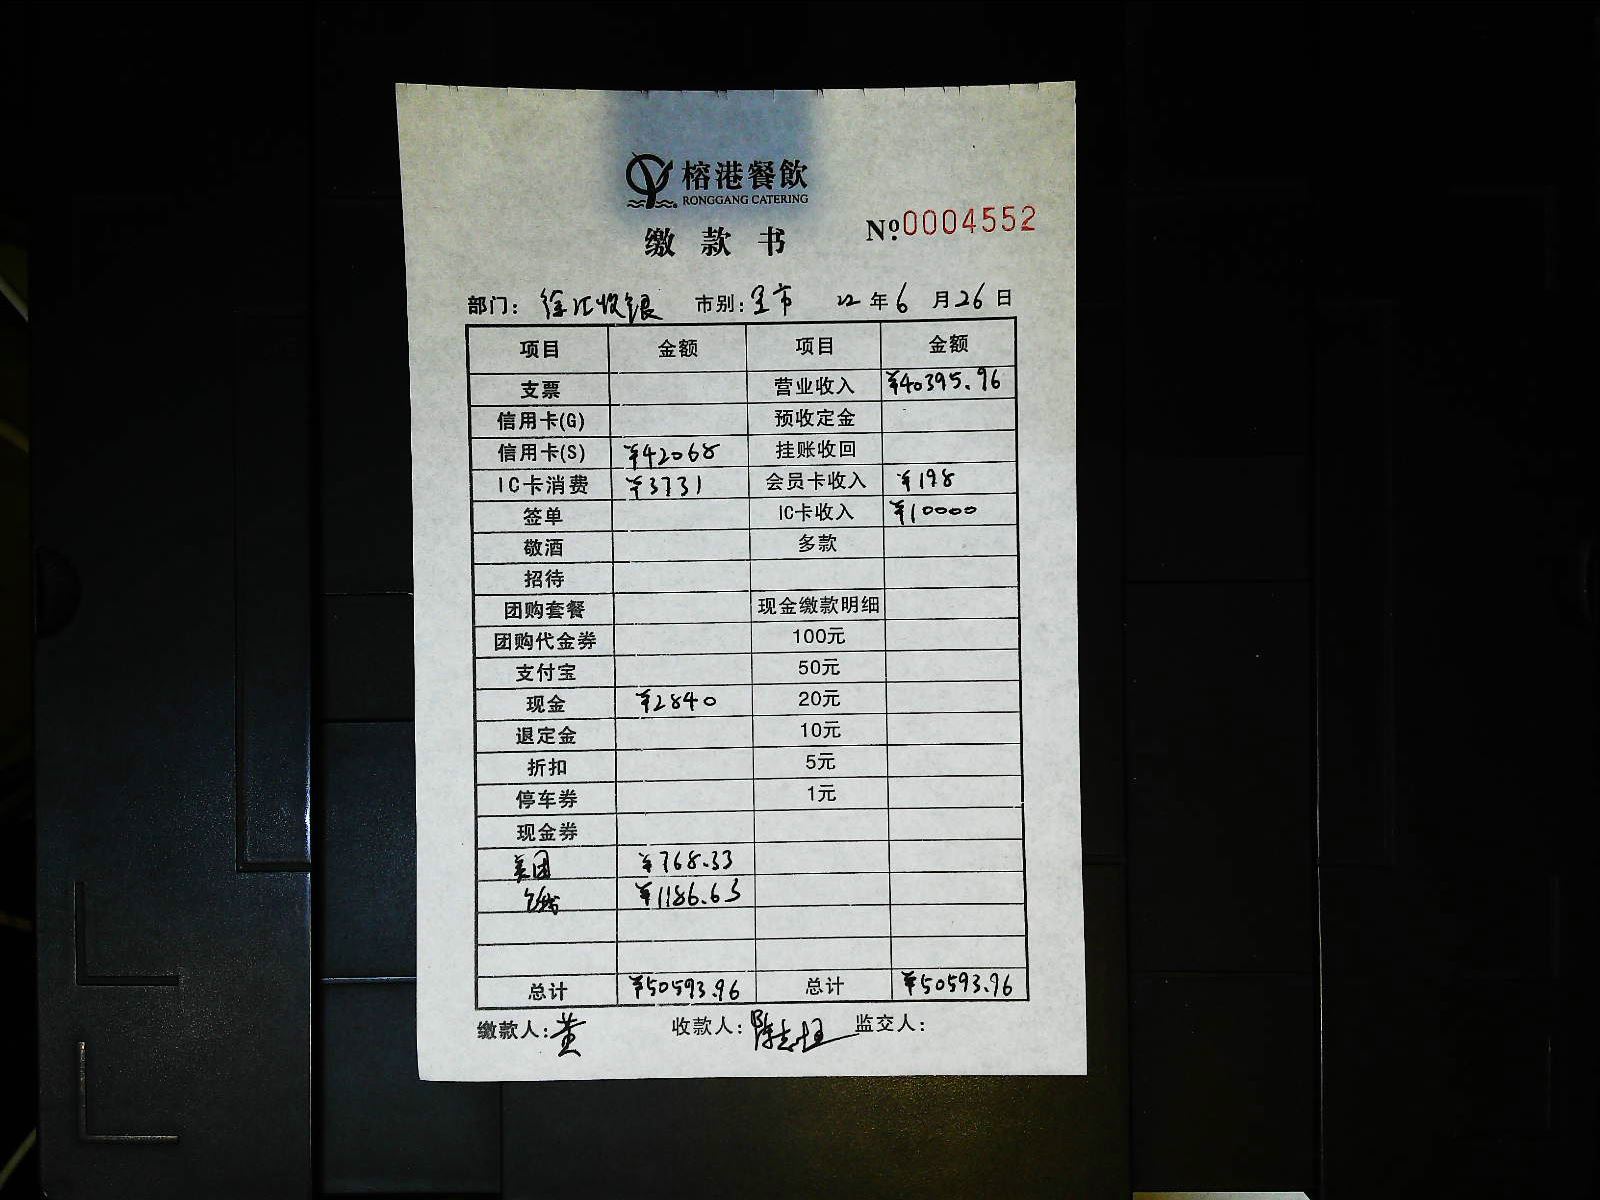 榕港餐飲
RONGGANG CATERING
缴款书
№0004552
部门：徐汇收银 市别：全市 22年6月26日
项目 金额 项目 金额
支票 营业收入 ¥40395.96
信用卡(G) 预收定金
信用卡(S) ¥42068 挂账收回
IC卡消费 ¥3731 会员卡收入 ¥198
签单 IC卡收入 ¥10000
敬酒 多款
招待
团购套餐 现金缴款明细
团购代金券 100元
支付宝 50元
现金 ¥2840 20元
退定金 10元
折扣 5元
停车券 1元
现金券
美团 ¥768.33
¥1186.63
总计 ¥50593.96 总计 ¥50593.96
缴款人： 收款人： 监交人：